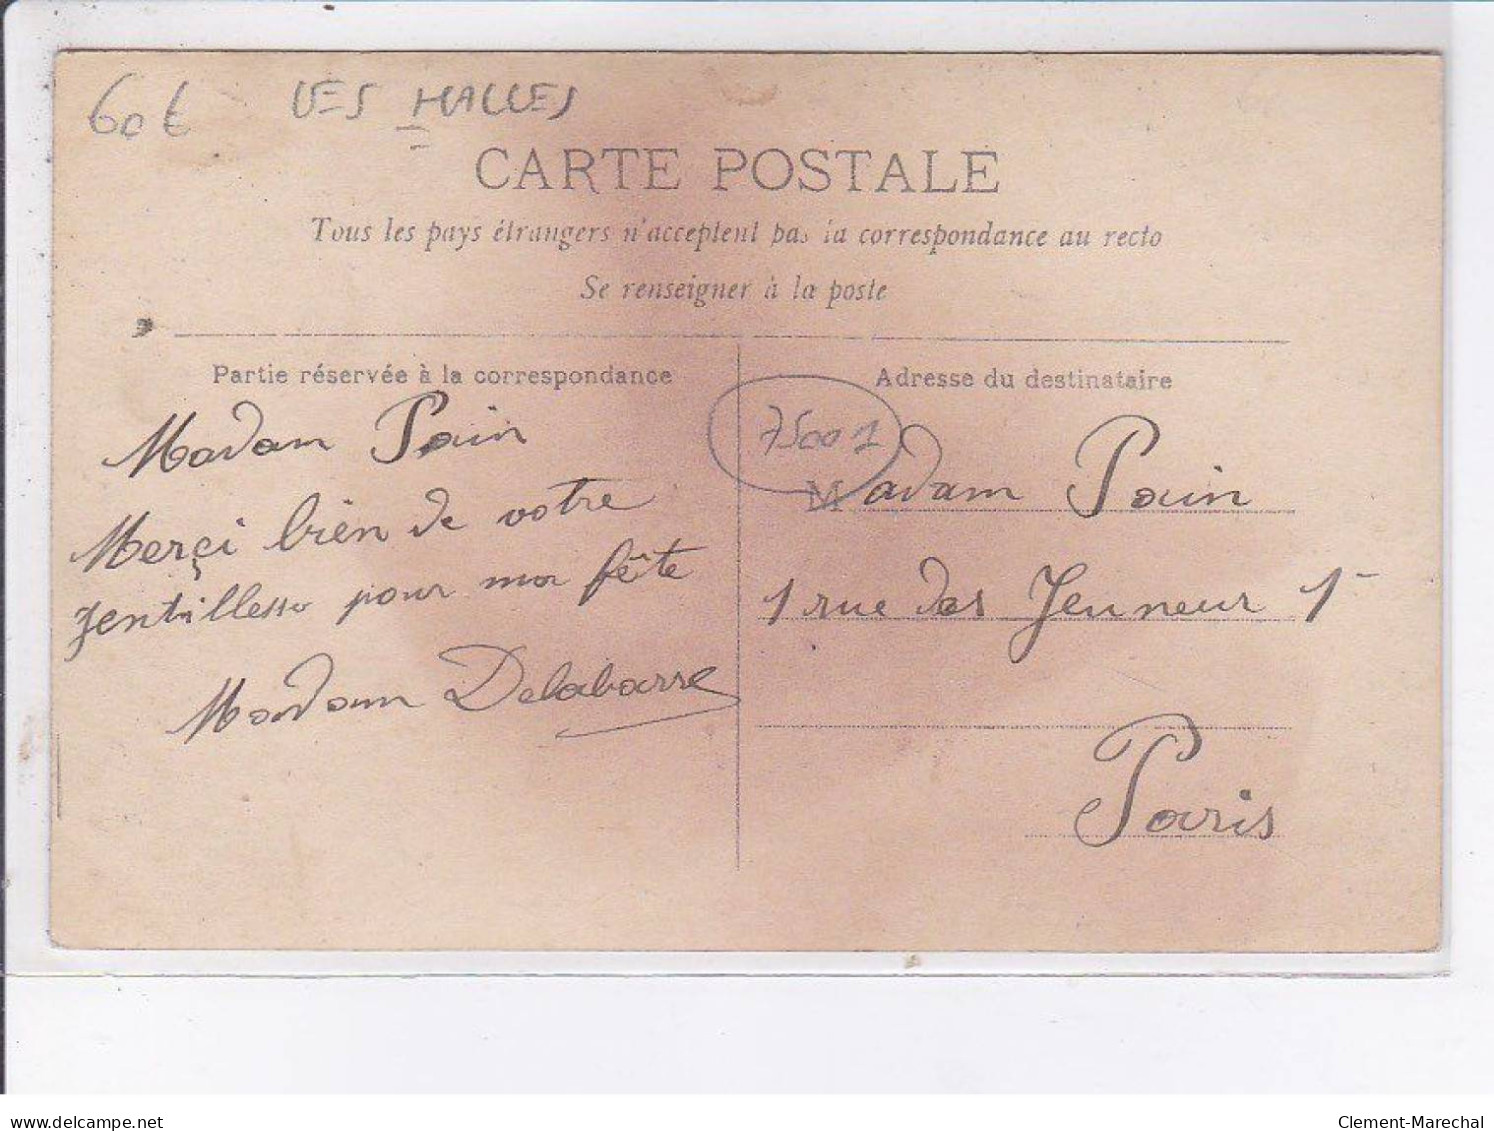 60€ LES HALLES
CARTE POSTALE
Tous les pays étrangers n'acceptent pas la correspondance au recto
Se renseigner à la poste
Partie réservée à la correspondance
Madam Pain
Merçi bien de votre
jentillesse pour ma fête
Madam Delabarre
Adresse du destinataire
75001
Madam Pain
1 rue des Jeuneur 1
Paris
www.delcampe.net
Clement-Marechal